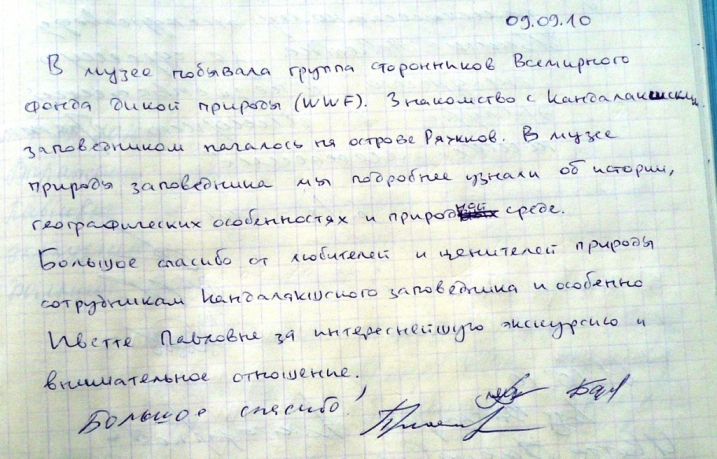 09.09.10
В музее побывала группа сторонников Всемирного
Фонда дикой природы (WWF). Знакомство с Кандалакшским
заповедником началось на острове Ряжков. В музее
природы заповедника мы подробнее узнали об истории,
географических особенностях и природной среде.
Большое спасибо от любителей и ценителей природы
сотрудникам Кандалакшского заповедника и особенно
Иветте Павловне за интереснейшую экскурсию и
внимательное отношение.
Большое спасибо!